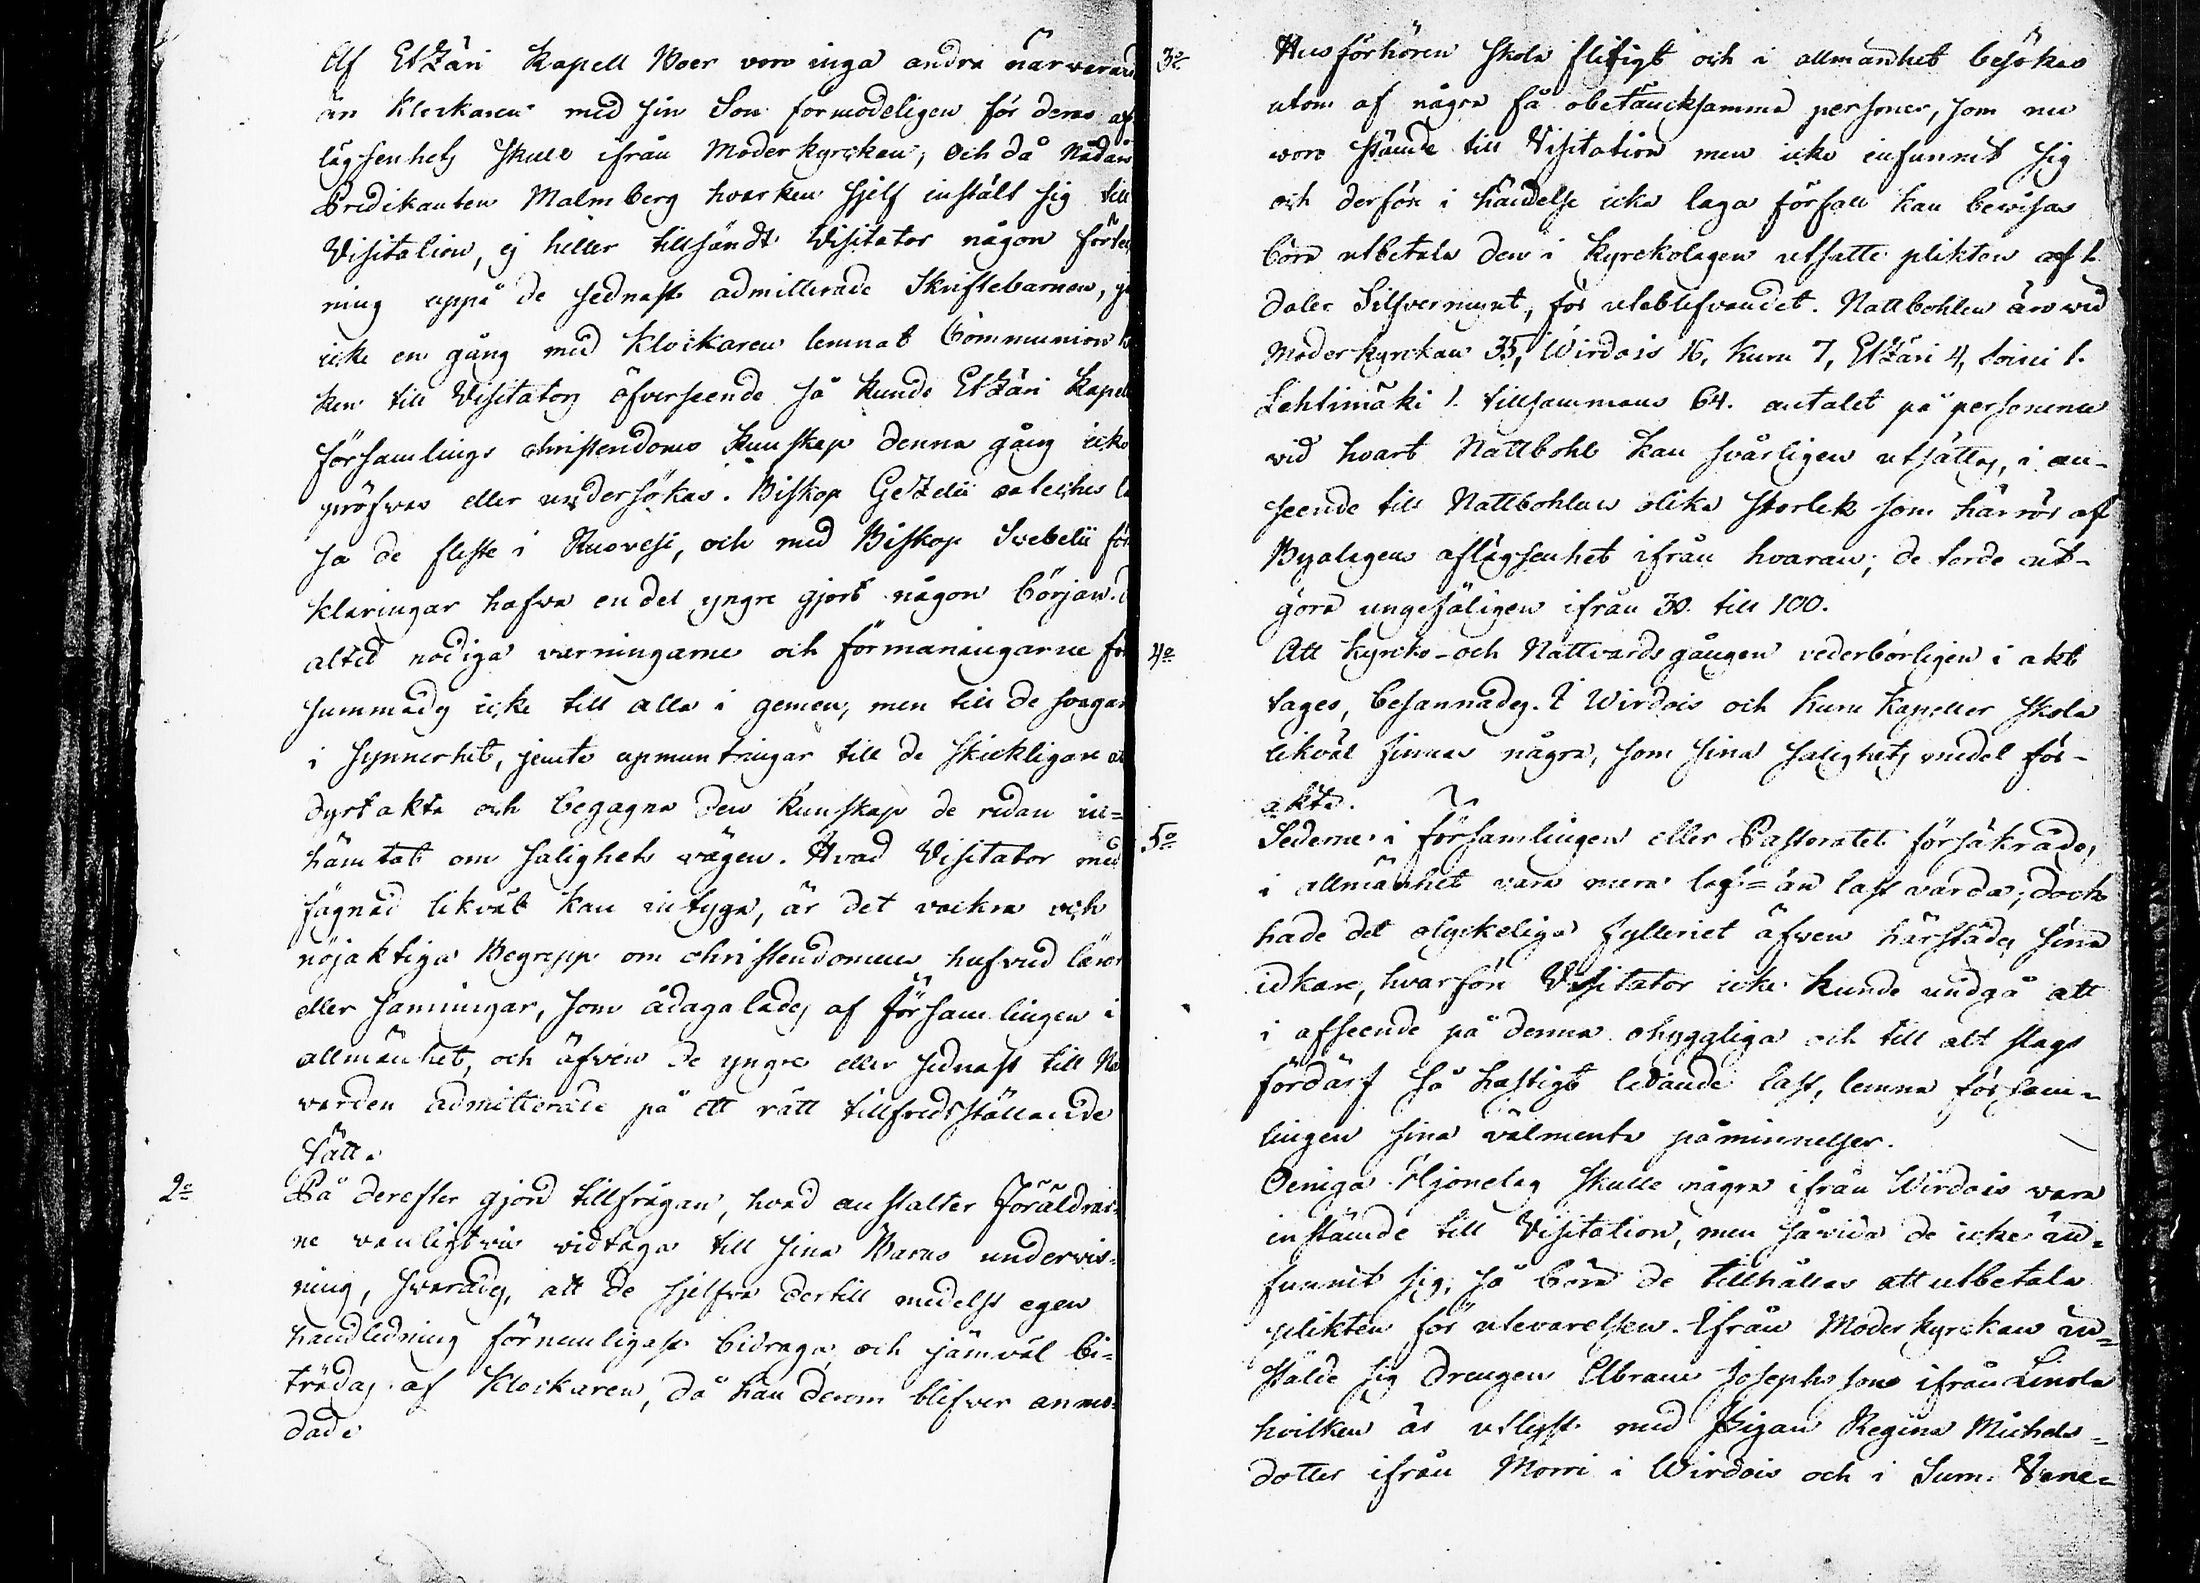 Af Etzäri Kapell Boer voro inga andra närvarand
än Klockaren med sin Son formodeligen för deras af
lägsenhets skull ifrån Moderkyrckan; Och då Nådår
Predikanten Malmberg hvarken sjelf instält sig till
Visitation, ej heller tillsändt Visitator någon förteck
ning uppå de sednast admitterade Skriftebarnen,
icke en gång med Klockaren lemnat Communion bo
ken till Visitators öfverseende så kunde Etzäri Kapell
församlings christendoms kunskap denna gång icke
pröfvas eller undersökas. Biskop Gezelii cateches lä
sa de fleste i Ruovesi, och med Biskop Svebelii för
klaringar hafva en del yngre gjort någon början.
altid nödiga varningarne och förmaningarne för
summades icke till alla i gemen, men till de svagare
i synnerhet, jemte upmuntringar till de skickligare at
dyrt akta och begagna den kunskap de redan in=
hämtat om salighets vägen. Hvad Visitator med
fägnad likväl kan intyga, är det vackra och
nöjaktiga Begrepp om christendomens hufvud läror
eller sanningar, som ådagalades af församlingen i
allmänhet, och äfven de yngre eller sednast till Na
varden admitterade på ett rätt tillfredsställande
sätt.
2o På derefter gjord tillfrågan, hvad anstalter föräldrar=
ne vanligtvis vidtaga till sina Barns undervis=
ning, svarades, att de sjelfva dertill medelst egen
handledning förnemligast bidraga, och jämväl bi=
trädas af Klockaren, då han derom blifver anmo=
dad.
3o Husförhören skola flitigt och i allmänhet besökas
utom af några få obetäncksamma personer, som nu
voro stämde till Visitation men icke infunnit sig
och derför i händelse icke laga förfall kan bevisas
böra utbetala den i Kyrckolagen utsatte plikten af 1.
daler Silfvermynt, för uteblifvandet. Nattbohlen äro vid
Moderkyrckan 35, Wirdois 16, Kuru 7, Etzäri 4, Soini 1.
Lehtimäki 1. tillsammans 64. antalet på personerne
vid hvart Nattbohl kan svårligen utsättas, i an-
seende till Nattbohlens olika storlek som härrör af
Byalagens aflägsenhet ifrån hvaran; de torde ut-
göra ungefäligen ifrån 30. till 100.
4o Att Kyrko- och Nattvards gången vederbörligen i akt
tages, besannades. I Wirdois och Kuru Kapeller skola
likväl finnas några, som sina salighets medel för-
akta.
5o Sederne i församlingen eller Pastoratet försäkrades,
i allmänhet vara mera log= än last varda; dock
hade det olyckeliga fylleriet äfven härstädes sina
idkare, hvarför Visitator icke kunde undgå att
i afseende på denna ohyggliga och till alt slags
fördärf så hastigt ledande last, lemna försam-
lingen sina välmenta påminnelser.
Oeniga Hjonelag skulle några ifrån Wirdois vara
instämde till Visitation, men såvida de icke in=
funnit sig, så böra de tillhållas att utbetala
plikten för utevarelsen. Ifrån Moderkyrckan in=
stälde sig Drengen Abram Josephsson ifrån Linola
hvilken är utlyst med Pigan Regina Michels=
dotter ifrån Morri i Wirdois och i Sum. Vene=